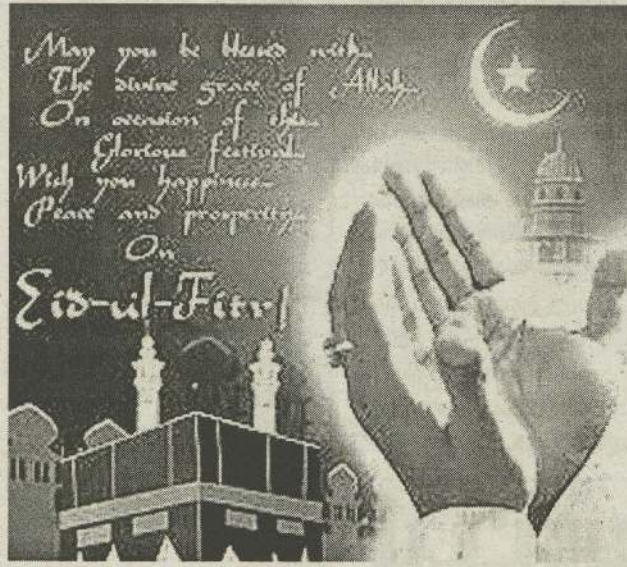 May you be blessed with...
The divine grace of Allah...
On occasion of this...
Glorious festival...
Wish you happiness...
Peace and prosperity...
On
Eid-ul-Fitr!